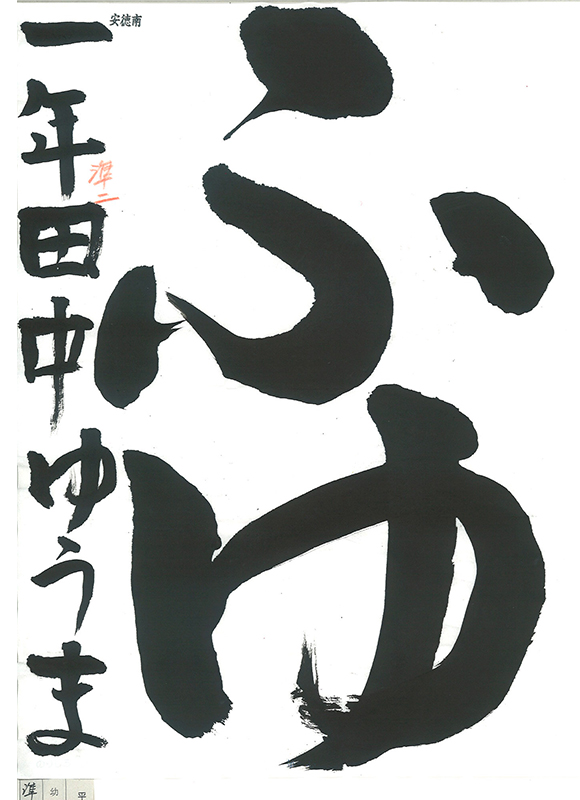 ふゆ
安德南
一年田中ゆうま
準二
準 幼 平